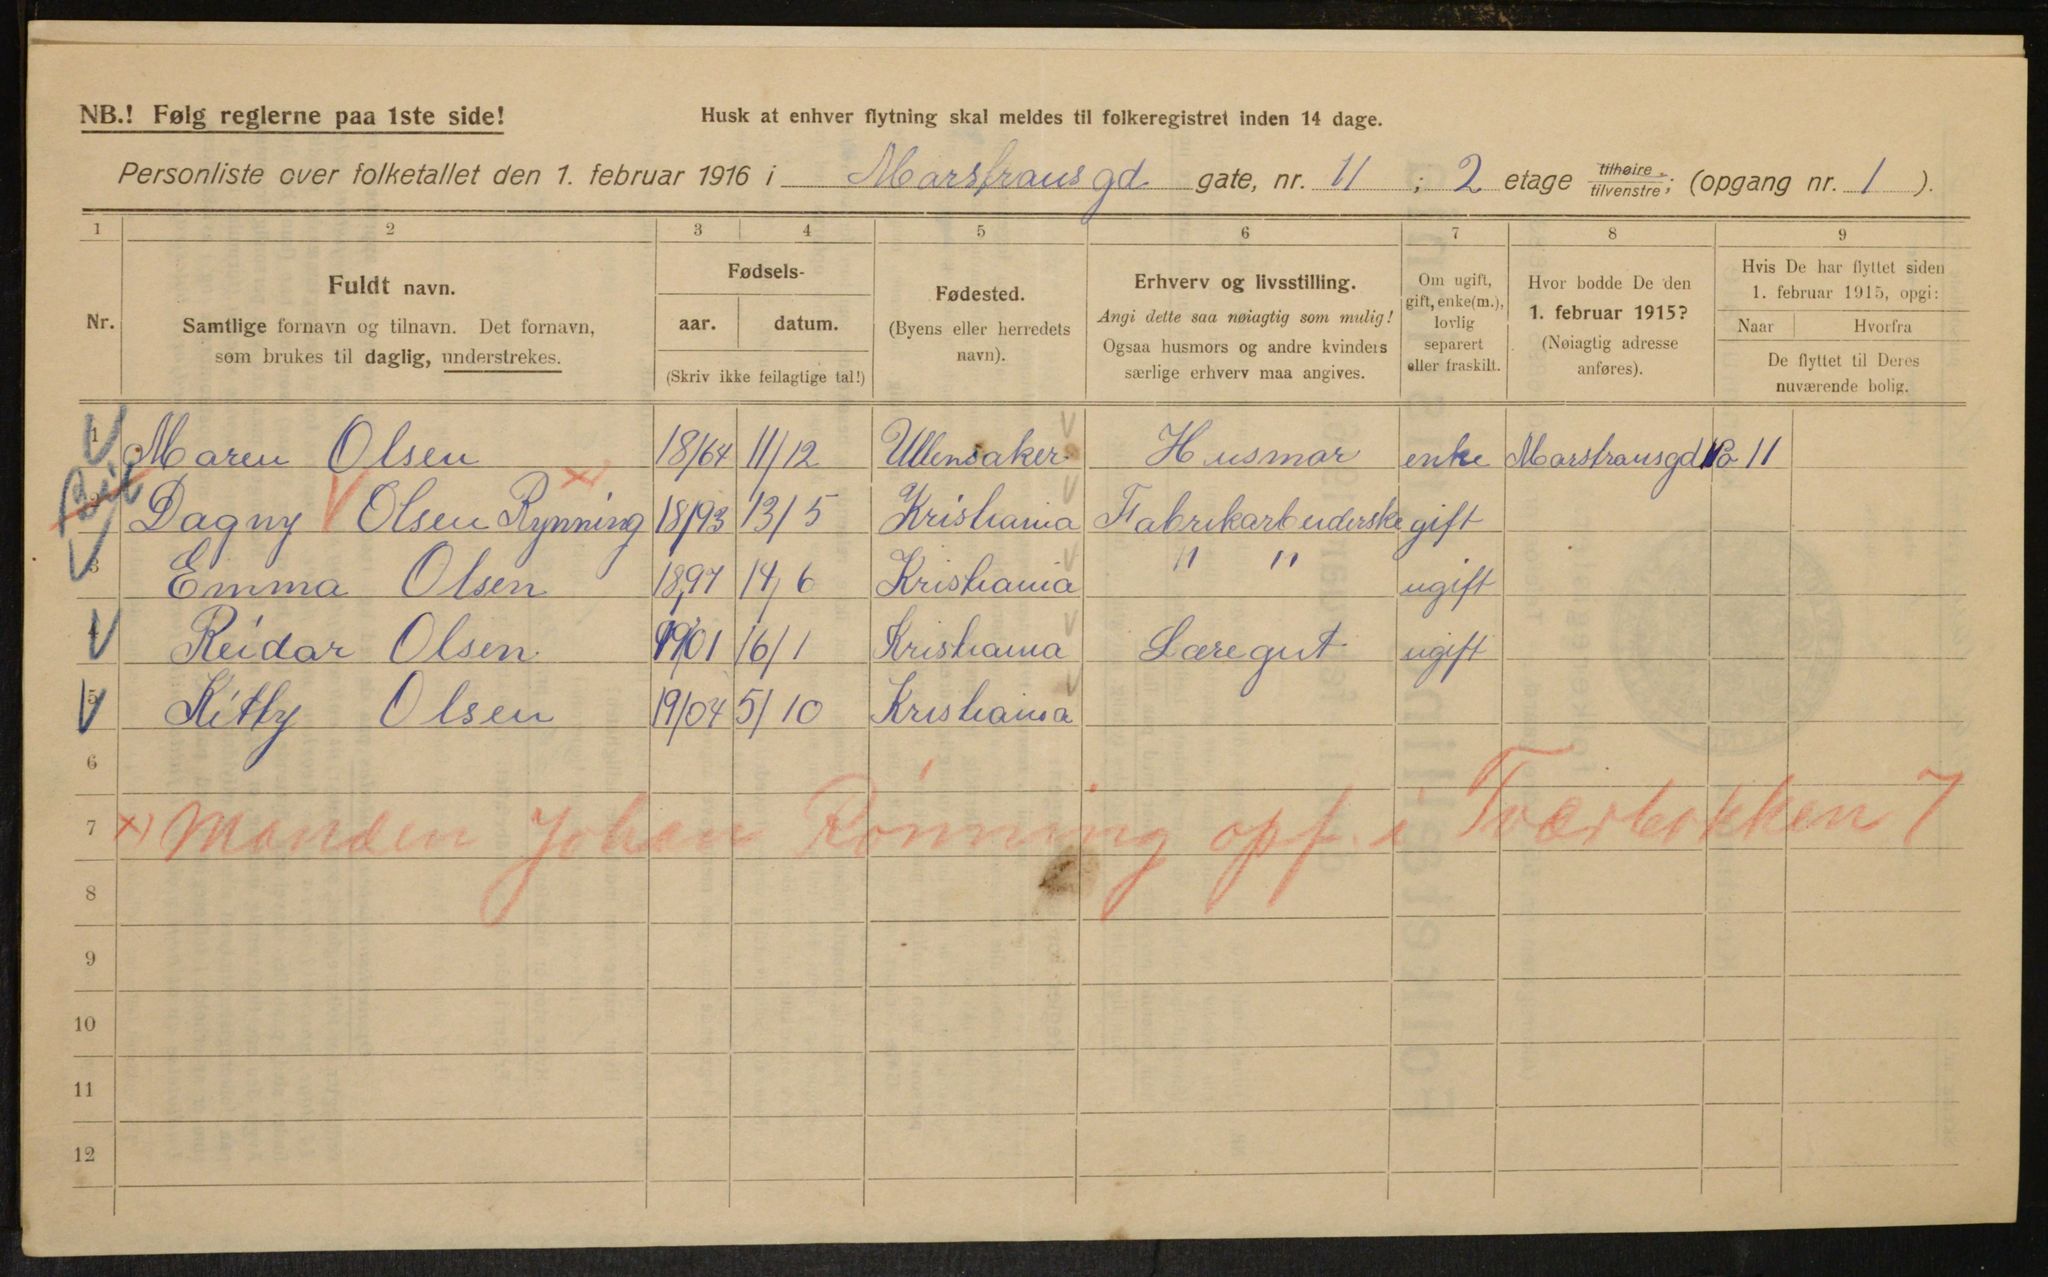 NB.! Følg reglerne paa 1ste side!
Husk at enhver flytning skal meldes til folkeregistret inden 14 dage.
Personliste over folketallet den 1. februar 1916 i Marstransgd gate, nr. 11 ; 2 etage tilhøire / tilvenstre; (opgang nr. 1 ).
1 2 3 4 5 6 7 8 9
Nr.
Fuldt navn.
Samtlige fornavn og tilnavn. Det fornavn,
som brukes til daglig, understrekes.
Fødsels-
aar. datum.
(Skriv ikke feilagtige tal!)
Fødested.
(Byens eller herredets
navn).
Erhverv og livsstilling.
Angi dette saa nøiagtig som mulig!
Ogsaa husmors og andre kvinders
særlige erhverv maa angives.
Om ugift,
gift, enke(m.),
lovlig
separert
eller fraskilt.
Hvor bodde De den
1. februar 1915?
(Nøiagtig adresse
anføres).
Hvis De har flyttet siden
1. februar 1915, opgi:
Naar Hvorfra
De flyttet til Deres
nuværende bolig.
1 Maren Olsen 18/64 11/12 Ullensaker Husmor enke Marstransgd No 11
2 Dagny Olsen Rynning 18/93 13/5 Kristiania Fabrikarbeiderske gift
3 Emma Olsen 18,97 14,6 Kristiania " " ugift
4 Reidar Olsen 19/01 16/1 Kristiania Læregut ugift
5 Kitty Olsen 19/04 5/10 Kristiania
6
7 x) Manden Johan Rönning opf. i Tværbakken 7
8
9
10
11
12